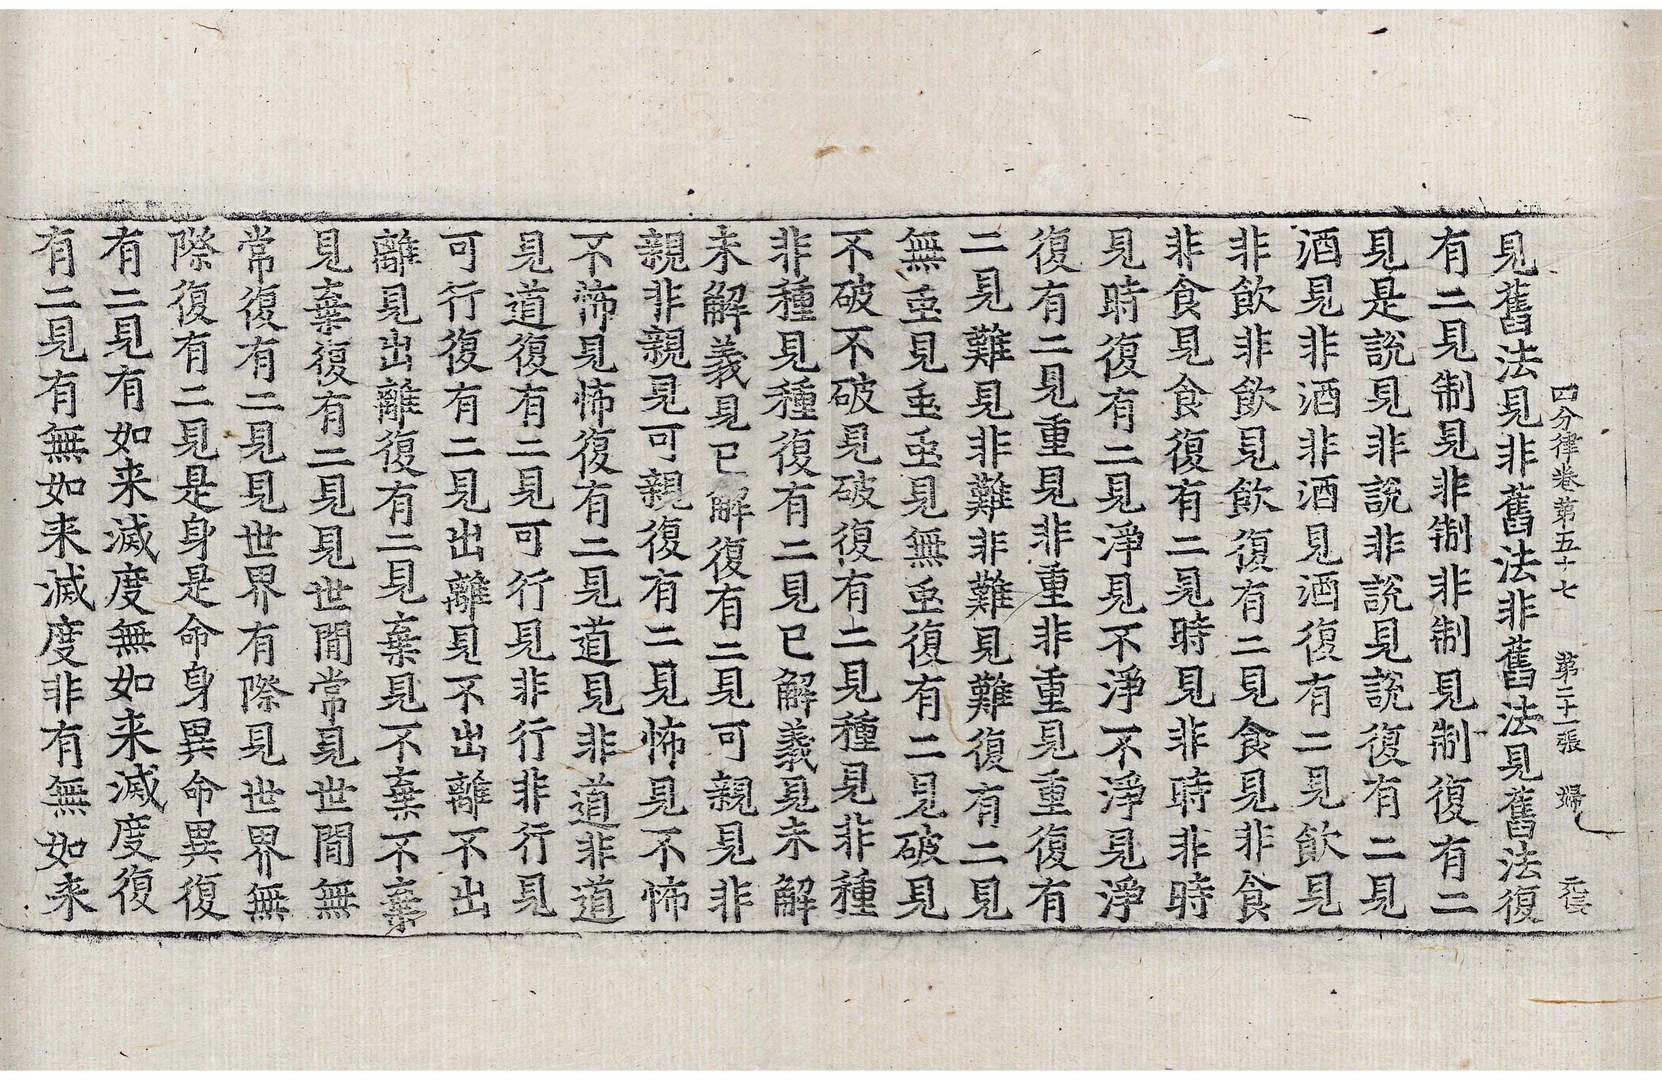 四分律卷第五十七 第二十一張 婦
見舊法見非舊法非舊法見舊法復
有二見制見非制非制見制復有二
見是說見非說非說見說復有二見
酒見非酒非酒見酒復有二見飲見
非飲非飲見飲復有二見食見非食
非食見食復有二見時見非時非時
見時復有二見淨見不淨不淨見淨
復有二見重見非重非重見重復有
二見難見非難非難見難復有二見
無䖝見䖝䖝見無䖝復有二見破見
不破不破見破復有二見種見非種
非種見種復有二見已解義見未解
未解義見已解復有二見可親見非
親非親見可親復有二見怖見不怖
不怖見怖復有二見道見非道非道
見道復有二見可行見非行非行見
可行復有二見出離見不出離不出
離見出離復有二見棄見不棄不棄
見棄復有二見見世間常見世間無
常復有二見見世界有際見世界無
際復有二見是身是命身異命異復
有二見有如来滅度無如来滅度復
有二見有無如来滅度非有無如来